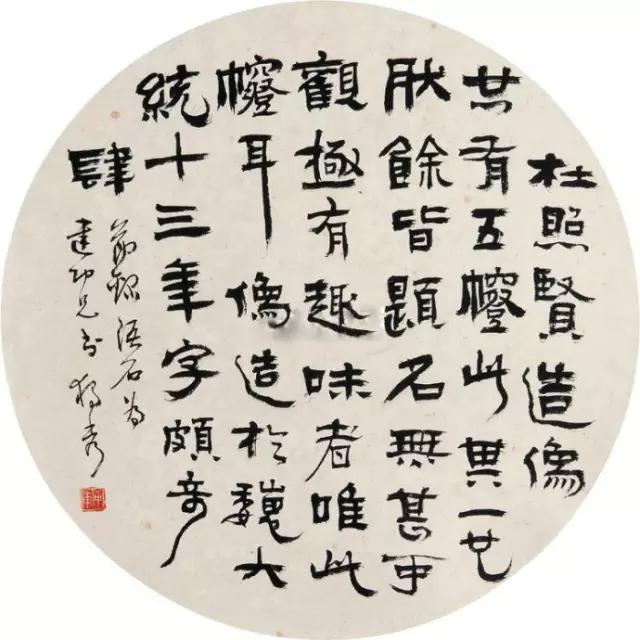 杜照賢造像
共有五此其一也
肰餘皆題名無甚可
觀極有趣味者唯此
耳像造於魏大
統十三年字頗奇
肆
節録語石為
建功兄書獨秀